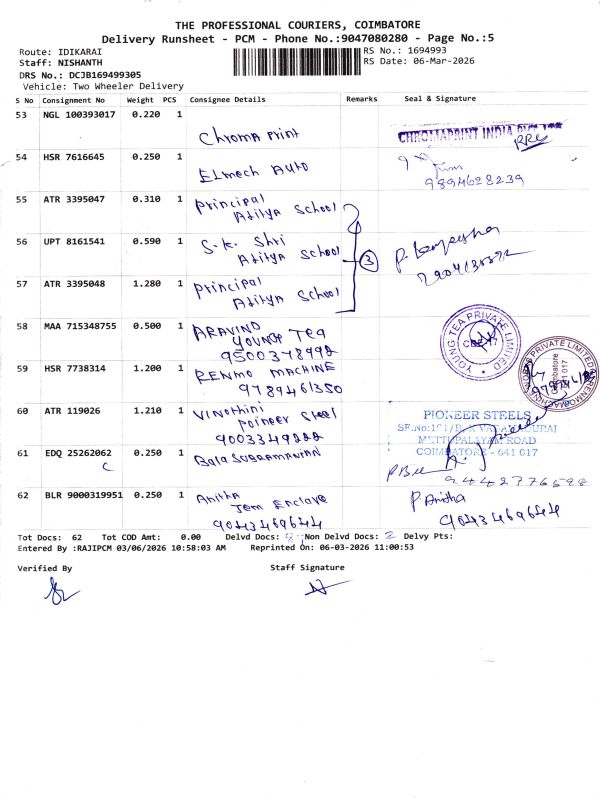 THE PROFESSIONAL COURIERS, COIMBATORE
Delivery Runsheet - PCM - Phone No.:9047080280 - Page No.:5
Route: IDIKARAI
RS No.: 1694993
Staff: NISHANTH
RS Date: 06-Mar-2026
DRS No.: DCJB169499305
Vehicle: Two Wheeler Delivery
S No Consignment No Weight PCS Consignee Details Remarks Seal & Signature
53 NGL 100393017 0.220 1
Chroma Print
CHROMAPRINT INDIA PVT. LTD
54 HSR 7616645 0.250 1
Elmech Auto
9894628239
55 ATR 3395047 0.310 1 Principal
Aditya School
56 UPT 8161541 0.590 1 S.K. Shri
Aditya School
3
57 ATR 3395048 1.280 1 Principal
Aditya School
58 MAA 715348755 0.500 1 ARAVIND
YOUNG TEA
9500378992
YOUNG TEA PRIVATE LIMITED
59 HSR 7738314 1.200 1 RENMO MACHINE
9789461350
60 ATR 119026 1.210 1 Vinothini
Poineer Steel
9003349222
PIONEER STEELS
METTUPALAYAM ROAD
COIMBATORE - 641 017
61 EDQ 25262062 0.250 1 Bala SUBRAMANIAN
C
9442776598
62 BLR 9000319951 0.250 1 Anitha
Jem Enclave
9043469644
P Anitha
9043469644
Tot Docs: 62 Tot COD Amt: 0.00 Delvd Docs: Non Delvd Docs: 2 Delvy Pts:
Entered By :RAJIPCM 03/06/2026 10:58:03 AM Reprinted On: 06-03-2026 11:00:53
Verified By Staff Signature